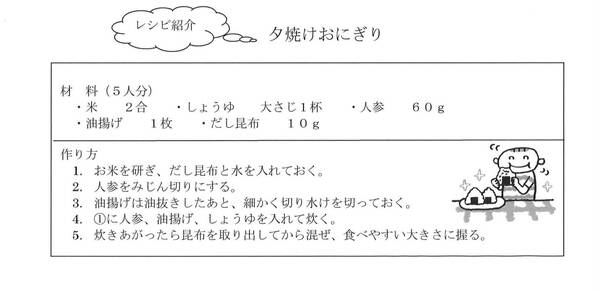 レシピ紹介
夕焼けおにぎり
材　料（５人分）
・米　　２合　　・しょうゆ　　大さじ１杯　　・人参　　６０ｇ
・油揚げ　　１枚　　・だし昆布　　１０ｇ
作り方
1.　お米を研ぎ、だし昆布と水を入れておく。
2.　人参をみじん切りにする。
3.　油揚げは油抜きしたあと、細かく切り水けを切っておく。
4.　①に人参、油揚げ、しょうゆを入れて炊く。
5.　炊きあがったら昆布を取り出してから混ぜ、食べやすい大きさに握る。